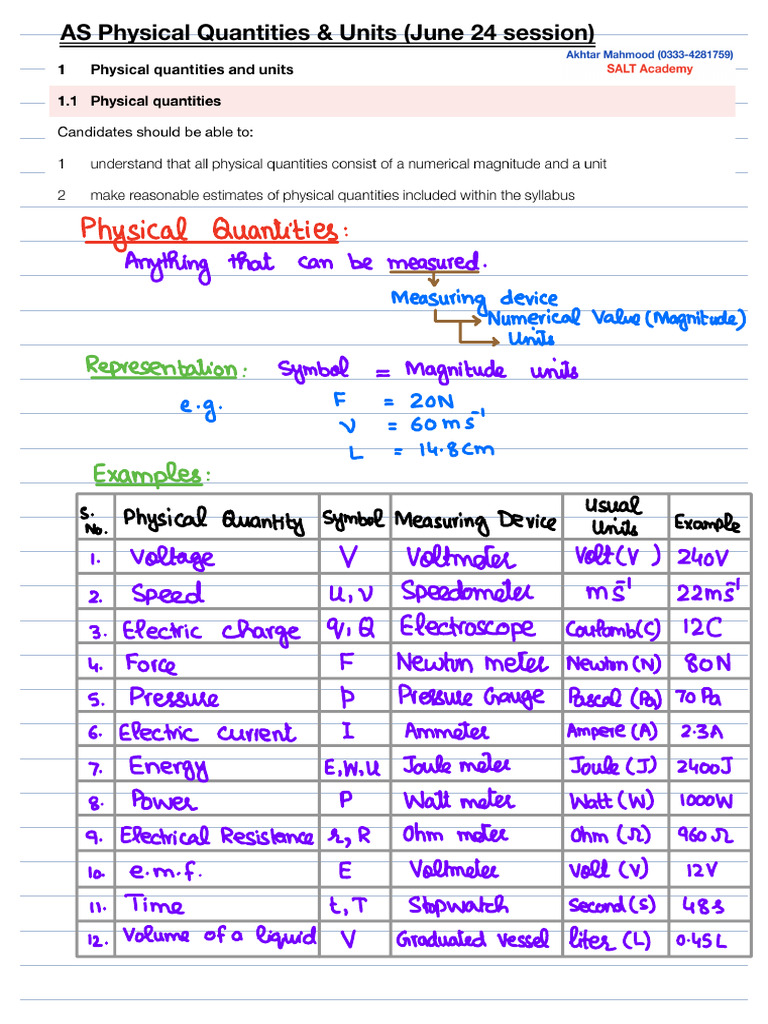 AS Physical Quantities & Units (June 24 session)
Akhtar Mahmood (0333-4281759)
SALT Academy
1 Physical quantities and units
1.1 Physical quantities
Candidates should be able to:
1 understand that all physical quantities consist of a numerical magnitude and a unit
2 make reasonable estimates of physical quantities included within the syllabus
Physical Quantities:
Anything that can be measured.
Measuring device
Numerical Value (Magnitude)
Units
Representation: Symbol = Magnitude units
e.g. F = 20N
v = 60ms⁻¹
L = 14.8cm
Examples:
S. No. Physical Quantity Symbol Measuring Device Usual Units Example
1. Voltage V Voltmeter Volt (V) 240V
2. Speed u, v Speedometer ms⁻¹ 22ms⁻¹
3. Electric charge q, Q Electroscope Coulomb (C) 12C
4. Force F Newton meter Newton (N) 80N
5. Pressure p Pressure Gauge Pascal (Pa) 70 Pa
6. Electric current I Ammeter Ampere (A) 2.3A
7. Energy E, W, U Joule meter Joule (J) 2400J
8. Power P Watt meter Watt (W) 1000W
9. Electrical Resistance r, R Ohm meter Ohm (Ω) 960 Ω
10. e.m.f. E Voltmeter Volt (V) 12V
11. Time t, T Stopwatch Second (s) 48s
12. Volume of a liquid V Graduated vessel liter (L) 0.45L